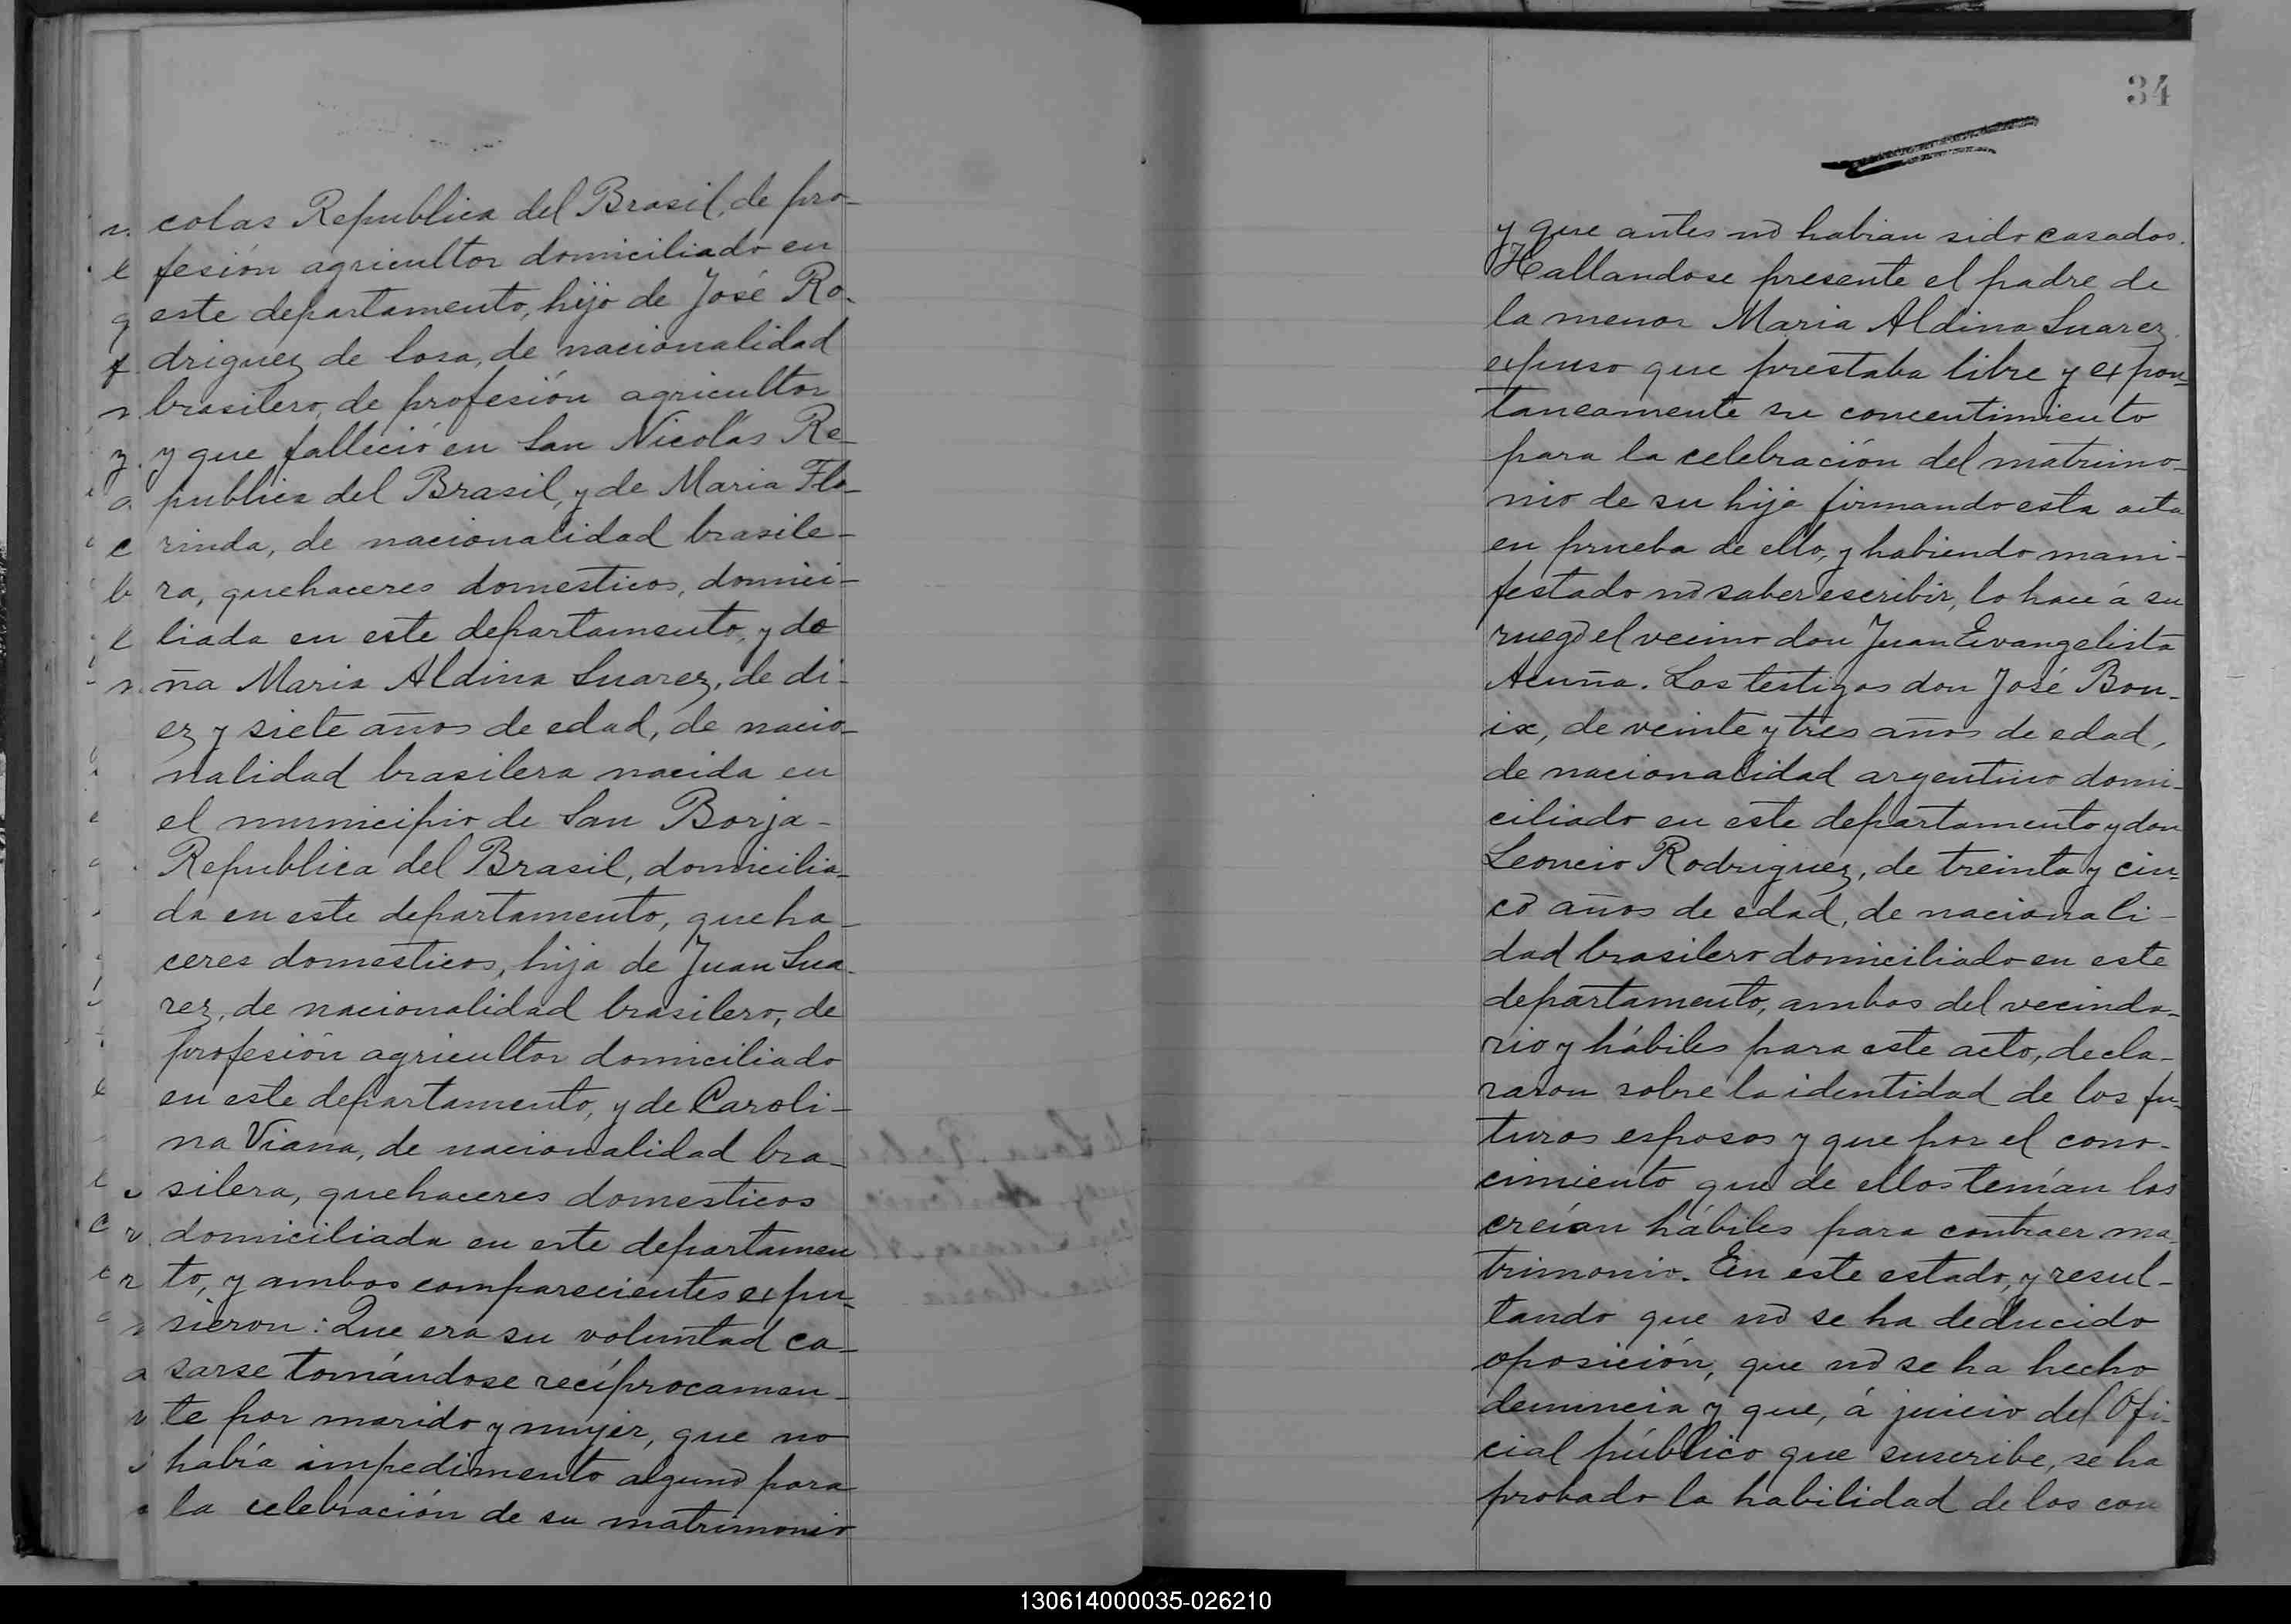 colas Republica del Brasil, de pro-
fesión agricultor domiciliado en
este departamento, hijo de José Ro-
driguez de losa, de nacionalidad
brasilero, de profesión agricultor
y que falleció en San Nicolás Re-
publica del Brasil, y de Maria Flo-
rinda, de nacionalidad brasile-
ra, quehaceres domesticos, domici-
liada en este departamento, y do
ña Maria Aldina Suarez, de di-
ez y siete años de edad, de nacio-
nalidad brasilera nacida en
el municipio de San Borja-
Republica del Brasil, domicilia-
da en este departamento, queha-
ceres domesticos, hija de Juan Sua-
rez, de nacionalidad brasilero, de
profesión agricultor domiciliado
en este departamento, y de Caroli-
na Viana, de nacionalidad bra-
silera, quehaceres domesticos
domiciliada en este departamen
to, y ambos comparecientes expu-
sieron: Que era su voluntad ca-
sarse tomándose recíprocamen-
te por marido y mujer, que no
había impedimento alguno para
la celebración de su matrimonio
34
y que antes no habian sido casados.
Hallandose presente el padre de
la menor Maria Aldina Suarez
expuso que prestaba libre y expon-
taneamente su concentimiento
para la celebración del matrimo-
nio de su hija firmando esta acta
en prueba de ello, y habiendo mani-
festado no saber escribir, lo hace á su
ruego el vecino don Juan Evangelista
Acuña. Los testigos don José Bon-
ix, de veinte y tres años de edad,
de nacionalidad argentino domi-
ciliado en este departamento y don
Leoncio Rodriguez, de treinta y cin-
co años de edad, de nacionali-
dad brasilero domiciliado en este
departamento, ambos del vecinda-
rio y hábiles para este acto, decla-
raron sobre la identidad de los fu-
turos esposos y que por el cono-
cimiento que de ellos tenían los
creían hábiles para contraer ma-
trimonio. En este estado, y resul-
tando que no se ha deducido
oposición, que no se ha hecho
denuncia y que, á juicio del Ofi-
cial público que suscribe, se ha
probado la habilidad de los con
130614000035-026210